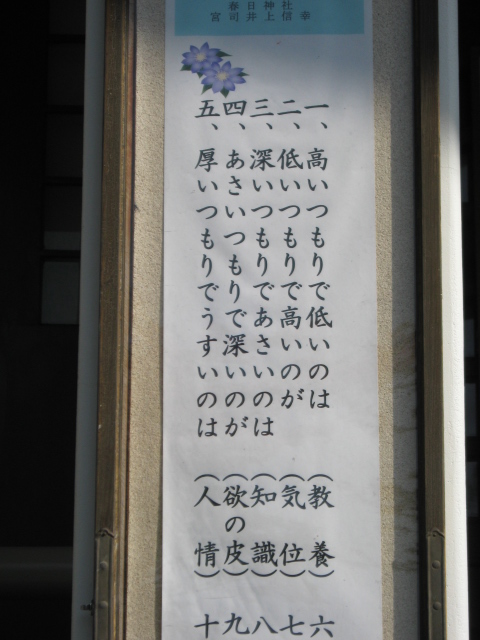 春日神社
宮司井上信幸
一、高いつもりで低いのは（教養）六
二、低いつもりで高いのが（気位）七
三、深いつもりであさいのは（知識）八
四、あさいつもりで深いのが（欲の皮）九
五、厚いつもりでうすいのは（人情）十